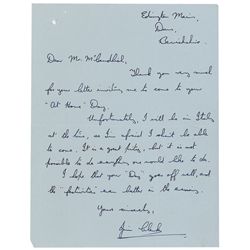 Edington Mains,
Duns,
Berwickshire
Dear Mr. M'Candlish,
Thank you very much
for your letter inviting me to come to your
"At Home" Day.
Unfortunately, I will be in Italy
at the time, so I'm afraid I shan't be able
to come. It is a great pity, but it is not
possible to do everything one would like to do.
I hope that your "Day" goes off well, and
the "festivities" even better in the evening.
Yours sincerely,
Jim Clark